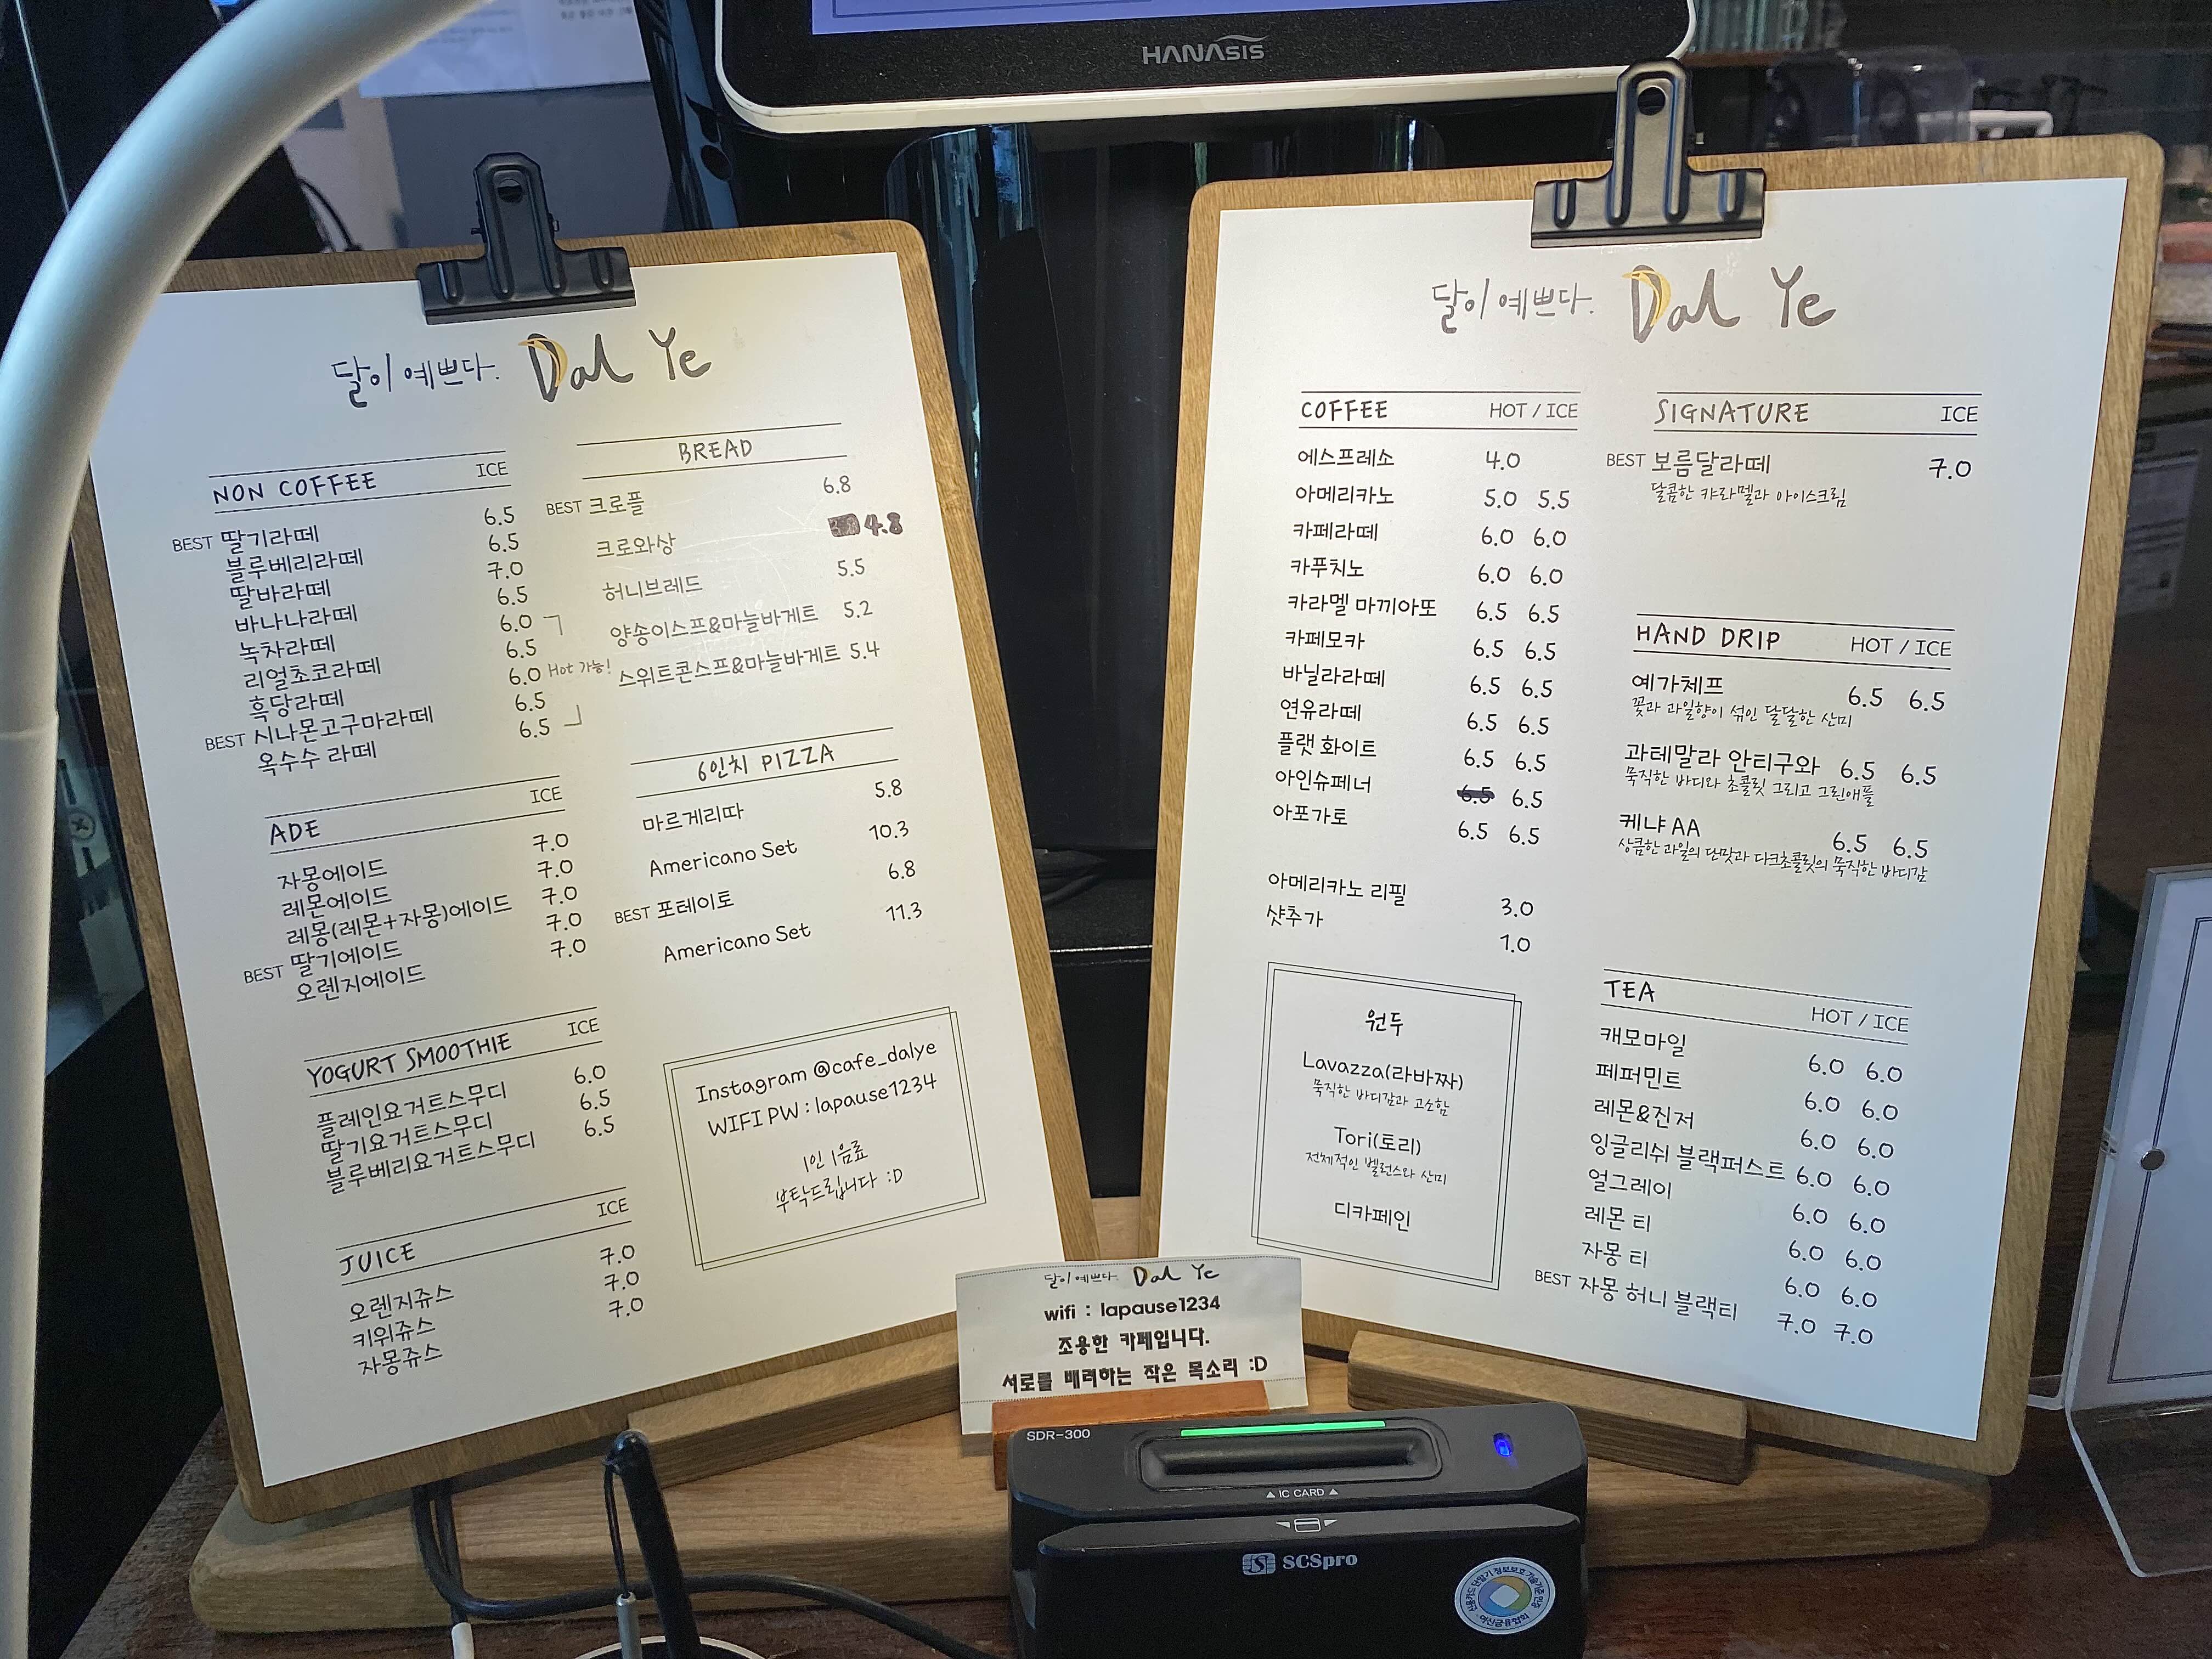 HANASIS
달이 예쁘다. Dal Ye
NON COFFEE ICE
BEST 딸기라떼 6.5
블루베리라떼 6.5
딸바라떼 7.0
바나나라떼 6.5
녹차라떼 6.0
리얼초코라떼 6.5
흑당라떼 6.0 Hot 가능!
BEST 시나몬고구마라떼 6.5
옥수수 라떼 6.5
ADE ICE
자몽에이드 7.0
레몬에이드 7.0
레몽(레몬+자몽)에이드 7.0
BEST 딸기에이드 7.0
오렌지에이드 7.0
YOGURT SMOOTHIE ICE
플레인요거트스무디 6.0
딸기요거트스무디 6.5
블루베리요거트스무디 6.5
JUICE ICE
오렌지쥬스 7.0
키위쥬스 7.0
자몽쥬스 7.0
BREAD
BEST 크로플 6.8
크로와상 4.8
허니브레드 5.5
양송이스프&마늘바게트 5.2
스위트콘스프&마늘바게트 5.4
6인치 PIZZA
마르게리따 5.8
Americano Set 10.3
BEST 포테이토 6.8
Americano Set 11.3
Instagram @cafe_dalye
WIFI PW : lapause1234
1인 1음료
부탁드립니다 :D
달이 예쁘다. Dal Ye
COFFEE HOT / ICE
에스프레소 4.0
아메리카노 5.0 5.5
카페라떼 6.0 6.0
카푸치노 6.0 6.0
카라멜 마끼아또 6.5 6.5
카페모카 6.5 6.5
바닐라라떼 6.5 6.5
연유라떼 6.5 6.5
플랫 화이트 6.5 6.5
아인슈페너 6.5 6.5
아포가토 6.5 6.5
아메리카노 리필 3.0
샷추가 1.0
원두
Lavazza(라바짜)
묵직한 바디감과 고소함
Tori(토리)
전체적인 벨런스와 산미
디카페인
SIGNATURE ICE
BEST 보름달라떼 7.0
달콤한 캬라멜과 아이스크림
HAND DRIP HOT / ICE
예가체프 6.5 6.5
꽃과 과일향이 섞인 달달한 산미
과테말라 안티구와 6.5 6.5
묵직한 바디와 초콜릿 그리고 그린애플
케냐 AA 6.5 6.5
상큼한 과일의 단맛과 다크초콜릿의 묵직한 바디감
TEA HOT / ICE
캐모마일 6.0 6.0
페퍼민트 6.0 6.0
레몬&진저 6.0 6.0
잉글리쉬 블랙퍼스트 6.0 6.0
얼그레이 6.0 6.0
레몬 티 6.0 6.0
자몽 티 6.0 6.0
BEST 자몽 허니 블랙티 7.0 7.0
달이 예쁘다. Dal Ye
wifi : lapause1234
조용한 카페입니다.
서로를 배려하는 작은 목소리 :D
SDR-300
IC CARD
SCSpro
여신금융협회